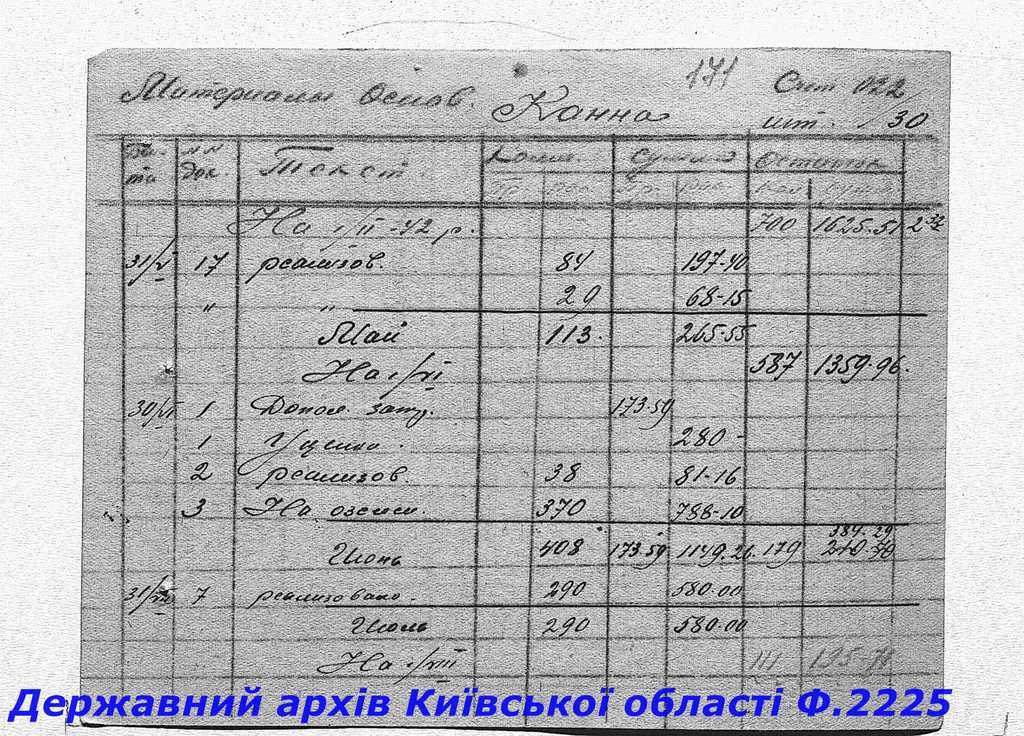 171
Материалы основ. Канна Счет 022/30
шт.
Дата № № док. Текст Колич. Сумма Остаток
Пр. рас. Пр. рас. Кол. Сумма
На 1/II-42 р. 700 1625-51 2 32
31/V 17 реализов. 84 197-40
" " 29 68-15
Май 113. 265-55
На 1/VI 587 1359-96.
30/VI 1 Допол. затр. 173-59
1 Уценка. 280-
2 реализов. 38 81-16
3 На озелен. 370 788-10
384-29
Июнь 408 173-59 1149.26 179
31/VII 7 реализовано. 290 580-00
Июль 290 580-00
На 1/VIII
Державний архів Київської області Ф.2225